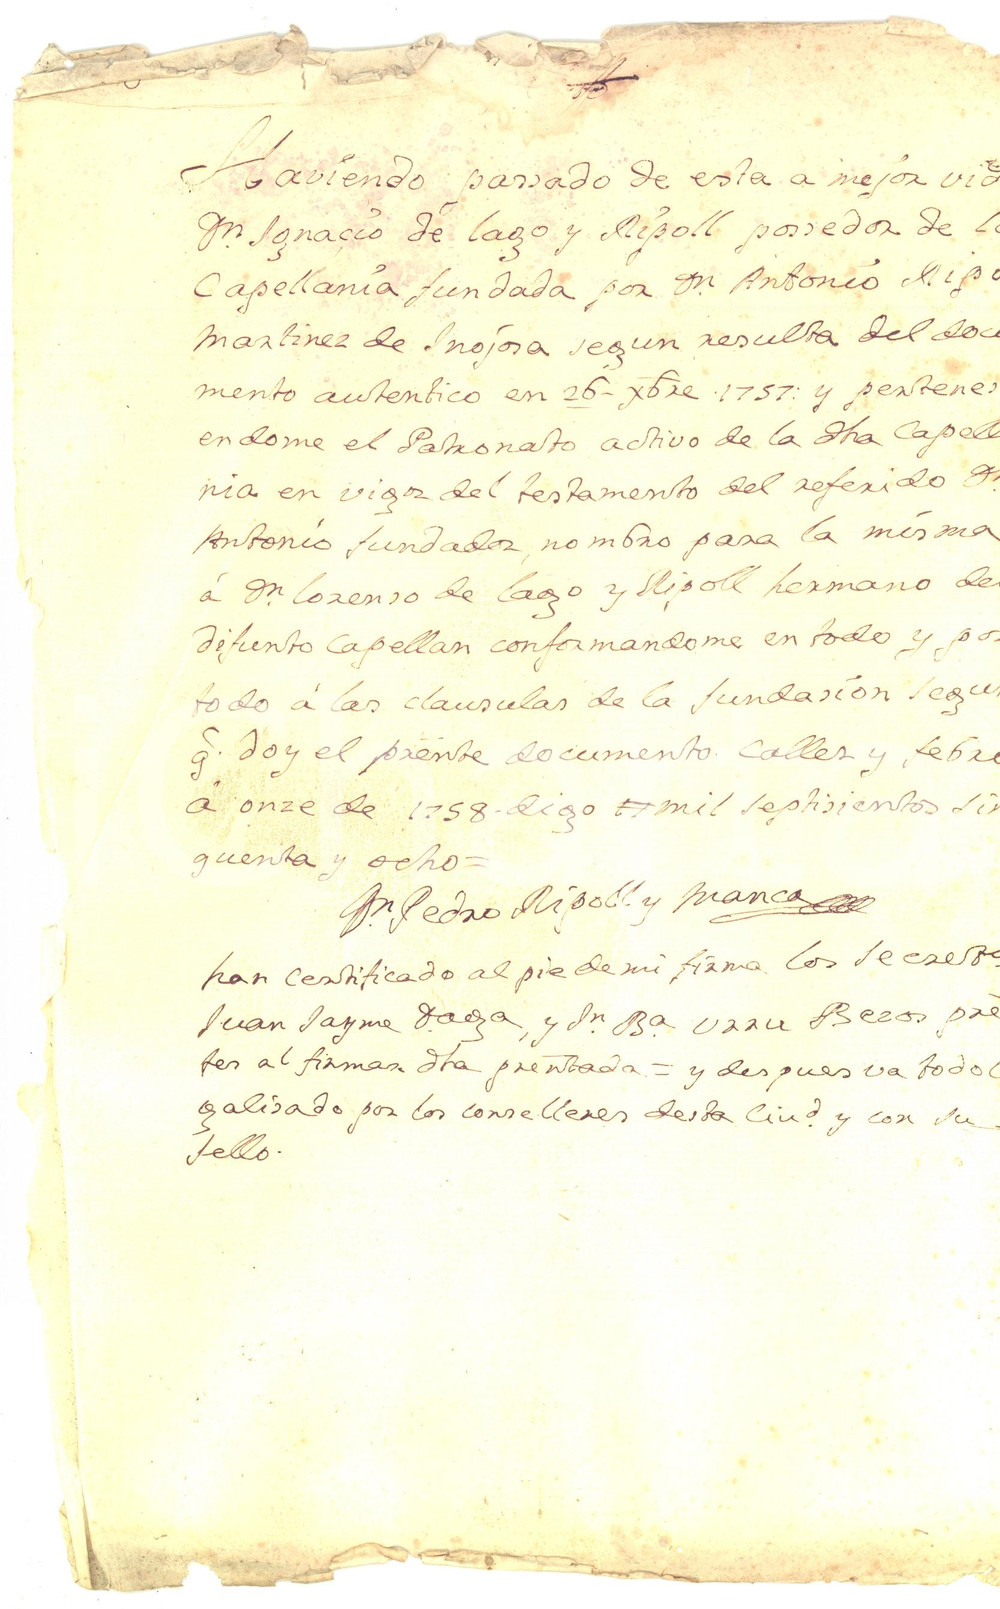 Haviendo passado de esta a mejor vid
Dn. Ignacio de Lago y Ripoll possedor de l
Capellania fundada por Dn Antonio Ripo
Martinez de Inojosa segun resulta del docu
mento autentico en 26 Xbre 1757: y pertenes
endome el Patronato activo de la dha Capell
nia en vigor del testamento del referido Dn
Antonio fundador, nombro para la misma
á Dn Lorenso de Lago y Ripoll hermano del
difunto Capellan conformandome en todo y por
todo á las clausulas de la fundasion segun
q. doy el prente documento. Caller y febre
á onze de 1758. digo mil septisientos sin
quenta y ocho =
Dn. Pedro Ripoll y Manca
han certificado al pie de mi firma los secret
Juan Jayme y Dn Ba. Urru pre
tes al firmar dha prentada = y despues va todo l
galisado por los conselleres desta Ciud. y con su
sello.